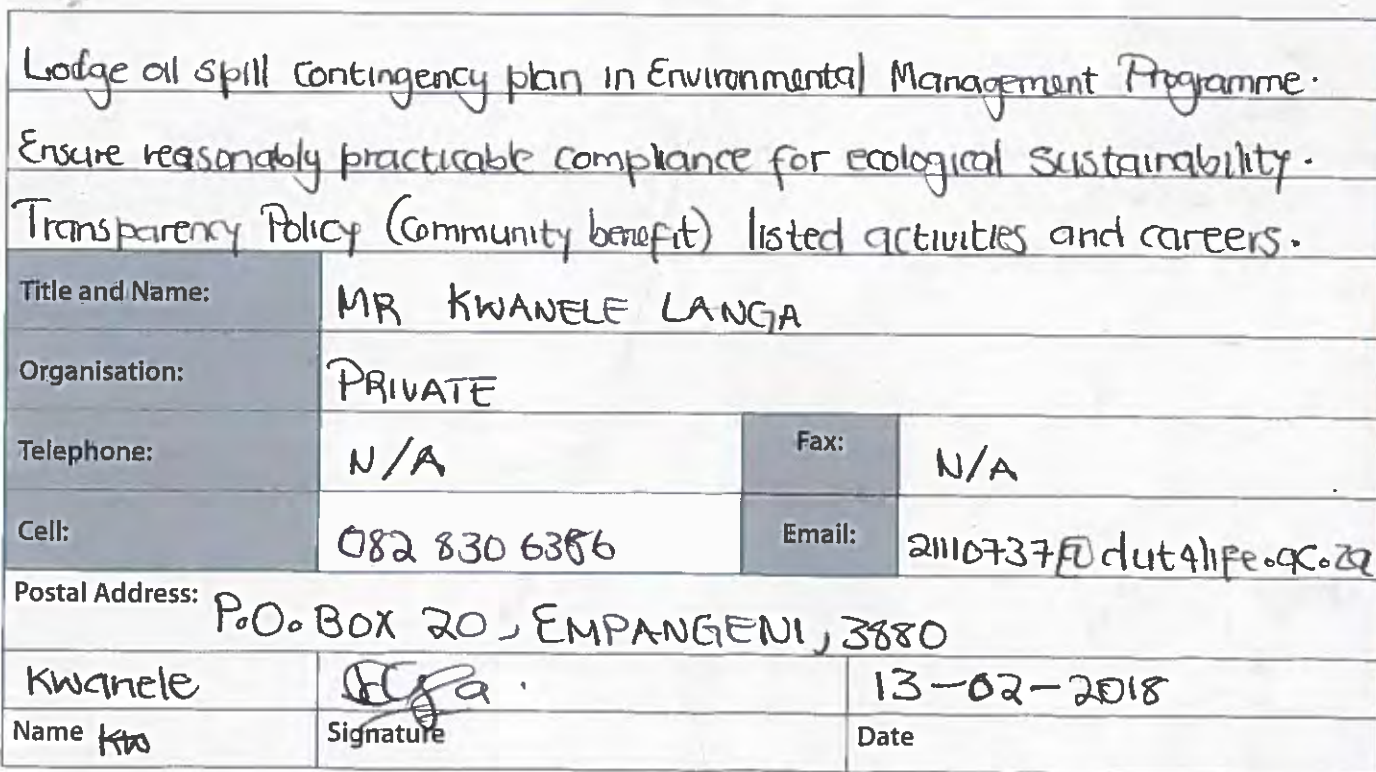 Lodge oil spill contingency plan in Environmental Management Programme.
Ensure reasonably practicable compliance for ecological sustainability.
Transparency Policy (Community benefit) listed activities and careers.
Title and Name: MR KWANELE LANGA
Organisation: PRIVATE
Telephone: N/A Fax: N/A
Cell: 082 830 6386 Email: 21110737@dut4life.ac.za
Postal Address: P.O. BOX 20, EMPANGENI, 3880
Kwanele 13-02-2018
Name Signature Date